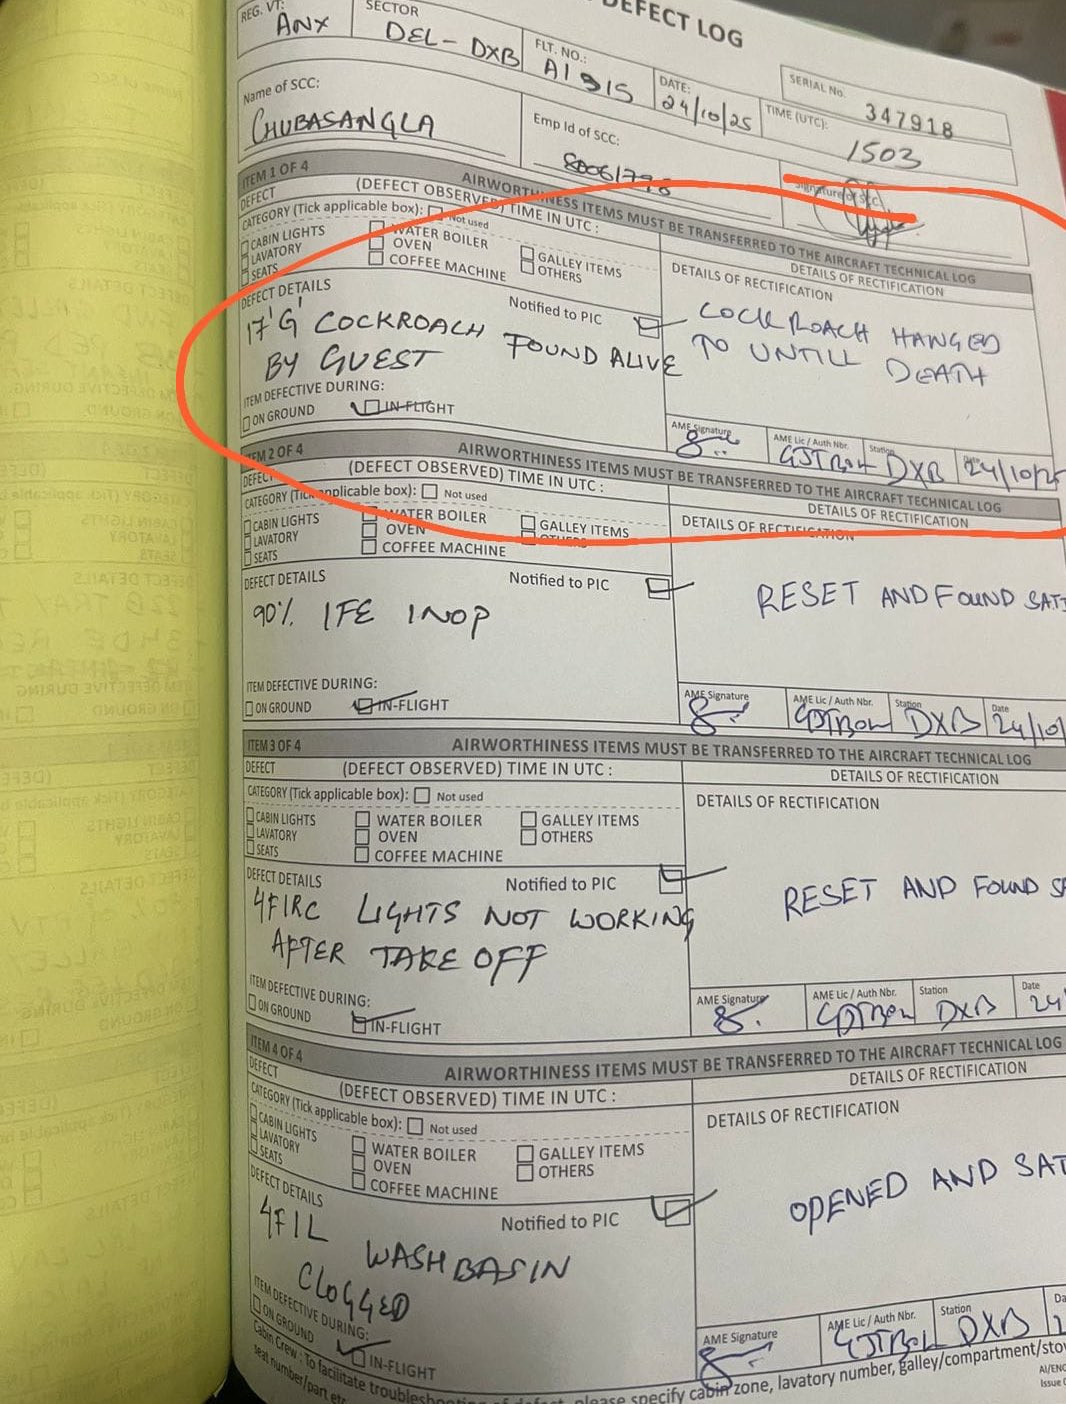 DEFECT LOG
REG. VT:
ANX
SECTOR
DEL - DXB
FLT. NO.:
AI 915
DATE:
24/10/25
SERIAL No. 347918
TIME (UTC):
1503
Name of SCC:
CHUBASANGLA
Emp Id of SCC:
Signature of SCC
ITEM 1 OF 4 AIRWORTHINESS ITEMS MUST BE TRANSFERRED TO THE AIRCRAFT TECHNICAL LOG
DEFECT (DEFECT OBSERVED) TIME IN UTC :
DETAILS OF RECTIFICATION
CATEGORY (Tick applicable box): Not used
CABIN LIGHTS WATER BOILER GALLEY ITEMS
LAVATORY OVEN OTHERS
SEATS COFFEE MACHINE
DETAILS OF RECTIFICATION
DEFECT DETAILS Notified to PIC
17'G' COCKROACH FOUND ALIVE
BY GUEST
COCKROACH HANGED
TO UNTILL
DEATH
ITEM DEFECTIVE DURING:
ON GROUND IN-FLIGHT
AME Signature AME Lic / Auth Nbr. Station Date
DXB 24/10/25
ITEM 2 OF 4 AIRWORTHINESS ITEMS MUST BE TRANSFERRED TO THE AIRCRAFT TECHNICAL LOG
DEFECT (DEFECT OBSERVED) TIME IN UTC : DETAILS OF RECTIFICATION
CATEGORY (Tick applicable box): Not used
CABIN LIGHTS WATER BOILER GALLEY ITEMS
LAVATORY OVEN OTHERS
SEATS COFFEE MACHINE
DETAILS OF RECTIFICATION
DEFECT DETAILS Notified to PIC
90% IFE INOP
RESET AND FOUND SAT
ITEM DEFECTIVE DURING:
ON GROUND IN-FLIGHT
AME Signature AME Lic / Auth Nbr. Station Date
DXB 24/10/
ITEM 3 OF 4 AIRWORTHINESS ITEMS MUST BE TRANSFERRED TO THE AIRCRAFT TECHNICAL LOG
DEFECT (DEFECT OBSERVED) TIME IN UTC : DETAILS OF RECTIFICATION
CATEGORY (Tick applicable box): Not used
CABIN LIGHTS WATER BOILER GALLEY ITEMS
LAVATORY OVEN OTHERS
SEATS COFFEE MACHINE
DETAILS OF RECTIFICATION
DEFECT DETAILS Notified to PIC
4F1RC LIGHTS NOT WORKING
AFTER TAKE OFF
RESET AND FOUND SA
ITEM DEFECTIVE DURING:
ON GROUND IN-FLIGHT
AME Signature AME Lic / Auth Nbr. Station Date
DXB 24
ITEM 4 OF 4 AIRWORTHINESS ITEMS MUST BE TRANSFERRED TO THE AIRCRAFT TECHNICAL LOG
DEFECT (DEFECT OBSERVED) TIME IN UTC : DETAILS OF RECTIFICATION
CATEGORY (Tick applicable box): Not used
CABIN LIGHTS WATER BOILER GALLEY ITEMS
LAVATORY OVEN OTHERS
SEATS COFFEE MACHINE
DETAILS OF RECTIFICATION
DEFECT DETAILS Notified to PIC
4F1L WASH BASIN
CLOGGED
OPENED AND SAT
ITEM DEFECTIVE DURING:
ON GROUND IN-FLIGHT
AME Signature AME Lic / Auth Nbr. Station Da
DXB
Cabin Crew : To facilitate troubleshooting of defect, please specify cabin zone, lavatory number, galley/compartment/stow
seat number/part etc
AI/ENG
Issue